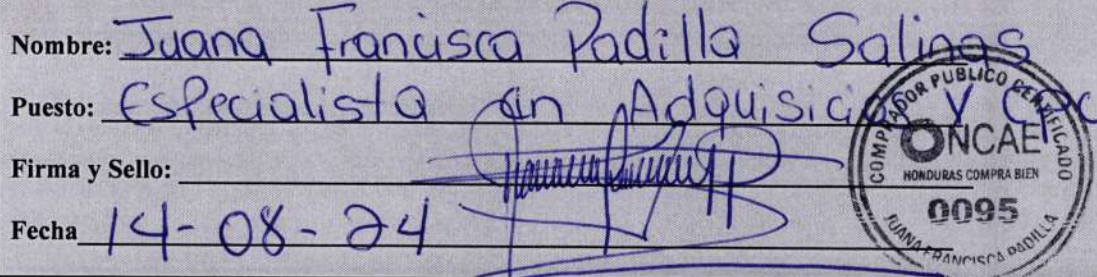 Nombre: Juana Francisca Padilla Salinas
Puesto: Especialista en Adquisicio y CPC
Firma y Sello:
Fecha 14-08-24
COMPRADOR PUBLICO CERTIFICADO
ONCAE
HONDURAS COMPRA BIEN
0095
JUANA FRANCISCA PADILLA